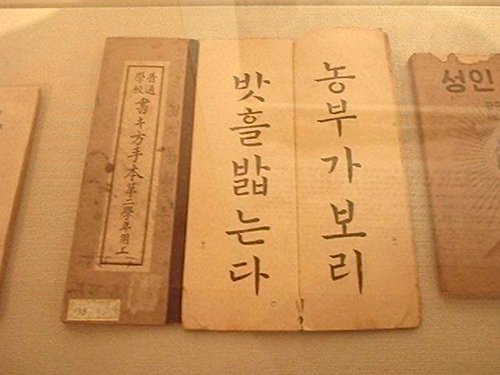 普通
學校
書キ方手本 第二學年用
농부가보리
밧흘밟는다
성인